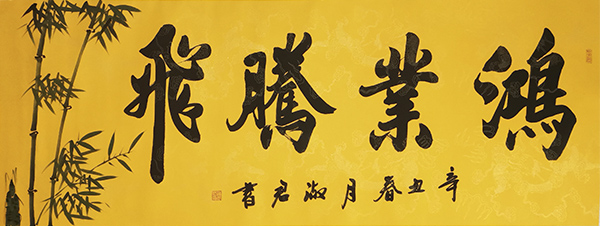 鴻業騰飛
辛丑春月淑君書